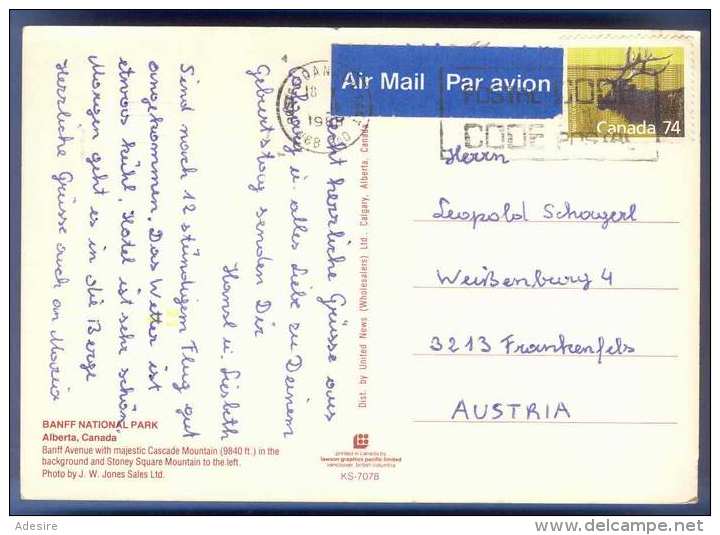 Recht herrliche Grüsse aus
Calgary u. alles Liebe zu Deinem
Geburtstag senden Dir
Hansl u. Liesbeth
Sind nach 12 stündigem Flug gut
angekommen. Das Wetter ist
etwas kühl, Hotel ist sehr schön.
Morgen geht es in die Berge
Herrliche Grüsse auch an Maria
Air Mail Par avion
POSTAL CODE
CODE POSTAL
Canada 74
Herrn
Leopold Schagerl
Weißenburg 4
3213 Frankenfels
AUSTRIA
Dist. by United News (Wholesalers) Ltd., Calgary, Alberta, Canada
BANFF NATIONAL PARK
Alberta, Canada
Banff Avenue with majestic Cascade Mountain (9840 ft.) in the
background and Stoney Square Mountain to the left.
Photo by J. W. Jones Sales Ltd.
printed in canada by
lawson graphics pacific limited
vancouver, british columbia
KS-7078
Adesire
delcampe.net